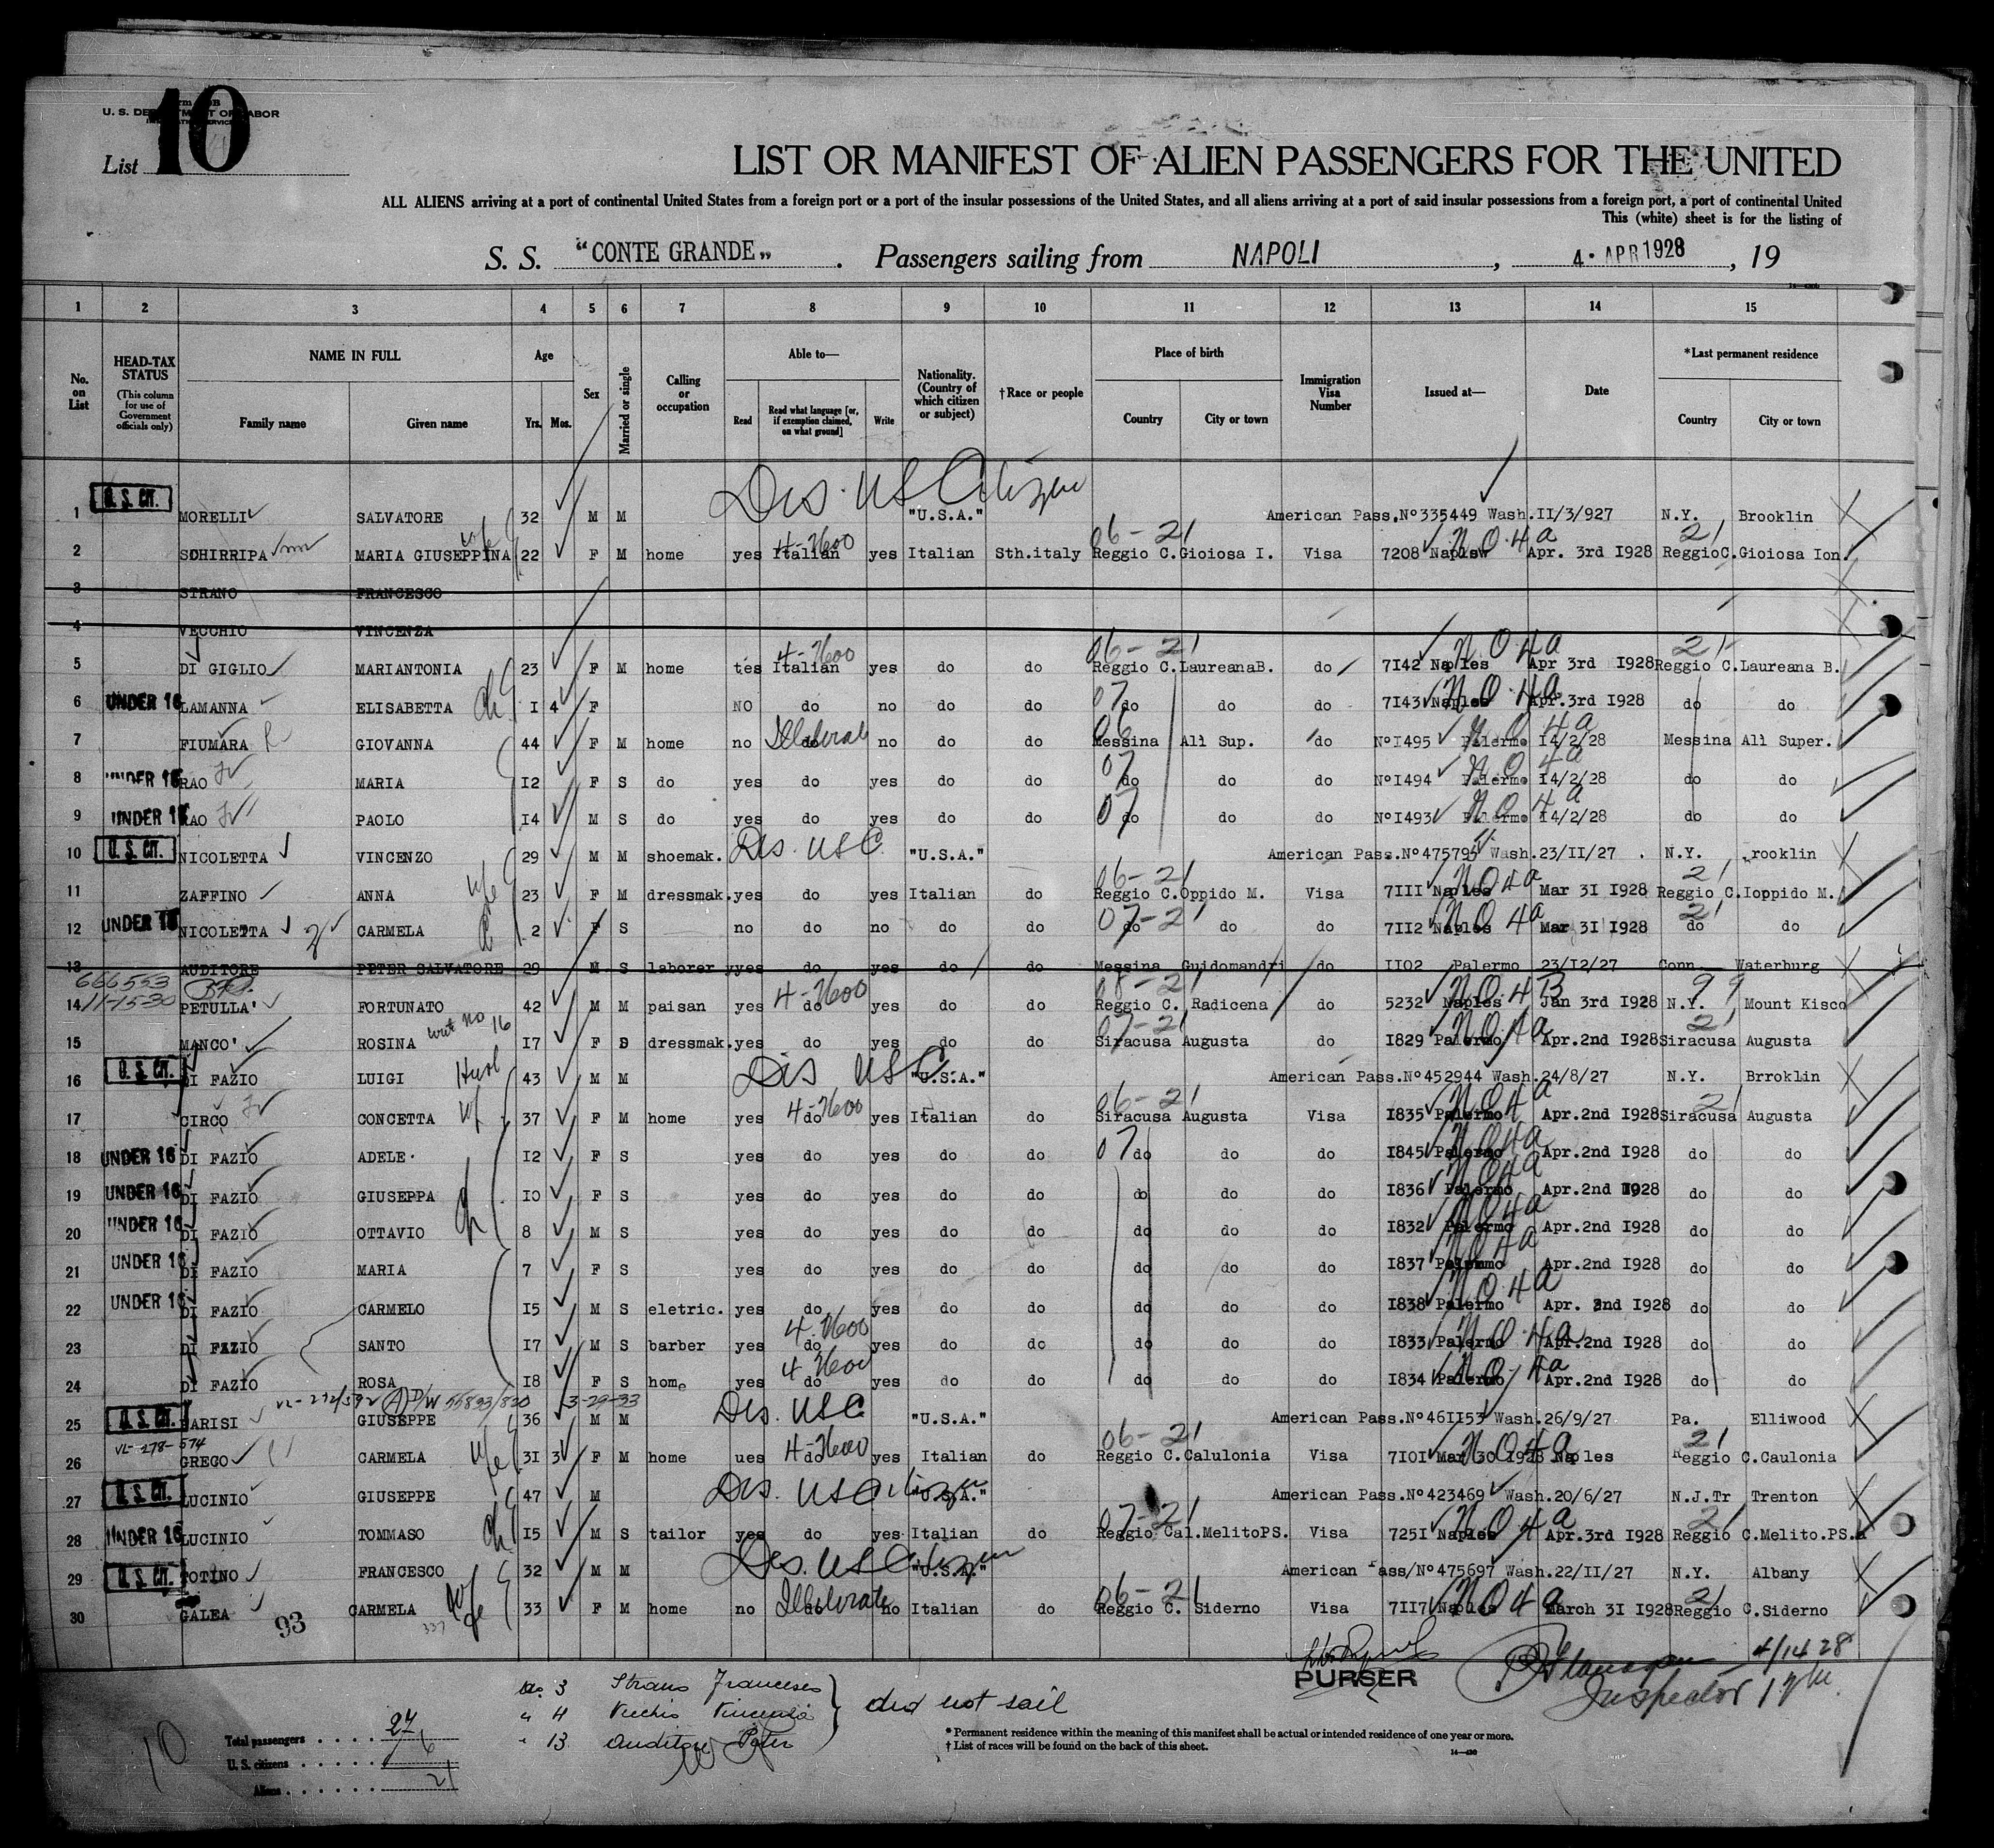 10
U. S. DEPARTMENT OF LABOR
List
LIST OR MANIFEST OF ALIEN PASSENGERS FOR THE UNITED
ALL ALIENS arriving at a port of continental United States from a foreign port or a port of the insular possessions of the United States, and all aliens arriving at a port of said insular possessions from a foreign port, a port of continental United
This (white) sheet is for the listing of
S. S. "CONTE GRANDE" . Passengers sailing from NAPOLI , 4 · APR 1928 , 19
1 2 3 4 5 6 7 8 9 10 11 12 13 14 15
No. on List HEAD-TAX STATUS (This column for use of Government officials only) NAME IN FULL Family name Given name Age Yrs. Mos. Sex Married or single Calling or occupation Able to— Read Read what language [or, if exemption claimed, on what ground] Write Nationality. (Country of which citizen or subject) †Race or people Place of birth Country City or town Immigration Visa Number Issued at— Date *Last permanent residence Country City or town
1 U. S. CIT. MORELLI SALVATORE 32 M M Dis. US Citizen "U.S.A." American Pass.No335449 Wash.II/3/927 N.Y. Brooklin
2 SCHIRRIPA MARIA GIUSEPPINA wife 22 F M home yes 4-2600 Italian yes Italian Sth.italy 06-21 Reggio C.Gioiosa I. Visa 7208 NQ4a Apr. 3rd I928 21 ReggioC.Gioiosa Ion.
3 STRANO FRANCESCO
4 VECCHIO VINCENZA
5 DI GIGLIO MARIANTONIA 23 F M home tes 4-2600 Italian yes do do 06-21 Reggio C.LaureanaB. do 7I42 Naples NQ4a Apr 3rd I928 21 Reggio C.Laureana B.
6 UNDER 16 LAMANNA ELISABETTA ch I 4 F NO do no do do 07 do do do 7I43 Naples NQ4a Apr.3rd I928 do do
7 FIUMARA GIOVANNA 44 F M home no Illiterate do no do do 06 Messina Alì Sup. do NoI495 Palermo NQ4a I4/2/28 Messina Alì Super.
8 UNDER 16 RAO MARIA I2 F S do yes do yes do do 07 do do do NoI494 Palermo NQ4a I4/2/28 do do
9 UNDER 16 RAO PAOLO I4 M S do yes do yes do do 07 do do do NoI493 Palermo NQ4a I4/2/28 do do
10 U. S. CIT. NICOLETTA VINCENZO 29 M M shoemak. Dis. USC "U.S.A." American Pass.No475795 Wash.23/II/27 . N.Y. rooklin
11 ZAFFINO ANNA wife 23 F M dressmak.yes do yes Italian do 06-21 Reggio C.Oppido M. Visa 7III Naples NQ4a Mar 3I I928 21 Reggio C.Ioppido M.
12 UNDER 16 NICOLETTA CARMELA 2 F S no do no do do 07-21 do do do 7II2 Naples NQ4a Mar 3I I928 21 do do
13 AUDITORE PETER SALVATORE 29 M S laborer yyes do yes do do Messina Guidomandri do II02 Palermo 23/I2/27 Conn Waterburg
666553
11-15-30
14 PETULLA' FORTUNATO 42 M M paisan yes 4-2600 do yes do do 08-21 Reggio C. Radicena do 5232 Naples NQ4B Jan 3rd I928 99 N.Y. Mount Kisco
15 MANCO' ROSINA no 16 I7 F dressmak.yes do yes do do 07-21 Siracusa Augusta do I829 Palermo NQ4a Apr.2nd I928 21 Siracusa Augusta
16 U. S. CIT. DI FAZIO LUIGI Husb 43 M M Dis USC "U.S.A." American Pass.No452944 Wash.24/8/27 N.Y. Brroklin
17 CIRCO CONCETTA wf 37 F M home yes 4-2600 do yes Italian do 06-21 Siracusa Augusta Visa I835 Palermo NQ4a Apr.2nd I928 21 Siracusa Augusta
18 UNDER 16 DI FAZIO ADELE I2 F S yes do yes do do 07 do do do I845 Palermo NQ4a Apr.2nd I928 do do
19 UNDER 16 DI FAZIO GIUSEPPA I0 F S yes do yes do do do do do I836 Palermo NQ4a Apr.2nd I928 do do
20 UNDER 16 DI FAZIO OTTAVIO ch 8 M S yes do yes do do do do do I832 Palermo NQ4a Apr.2nd I928 do do
21 UNDER 16 DI FAZIO MARIA 7 F S yes do yes do do do do do I837 Palermo NQ4a Apr.2nd I928 do do
22 UNDER 16 DI FAZIO CARMELO I5 M S eletric. yes do yes do do do do do I838 Palermo NQ4a Apr. 2nd I928 do do
23 DI FAZIO SANTO I7 M S barber yes 4-2600 do yes do do do do do I833 Palermo NQ4a Apr.2nd I928 do do
24 DI FAZIO ROSA I8 F S home yes 4-2600 do yes do do do do do I834 Palermo NQ4a Apr.2nd I928 do do
3-29-33
25 U. S. CIT. PARISI GIUSEPPE 36 M M Dis. USC "U.S.A." American Pass.No46II53 Wash.26/9/27 Pa. Elliwood
VL-278-574
26 GREGO CARMELA wife 3I 3 F M home ues 4-2600 do yes Italian do 06-21 Reggio C.Calulonia Visa 7I0I Mar 30 I928 Naples NQ4a 21 Reggio C.Caulonia
27 U. S. CIT. LUCINIO GIUSEPPE 47 M Dis. US Citizen "U.S.A." American Pass.No423469 Wash.20/6/27 N.J.Tr Trenton
28 UNDER 16 LUCINIO TOMMASO ch I5 M S tailor yes do yes Italian do 07-21 Reggio Cal.MelitoPS. Visa 725I Naples NQ4a Apr.3rd I928 21 Reggio C.Melito.PS.a
29 U. S. CIT. TOTINO FRANCESCO 32 M M Dis. US Citizen "U.S.A." American ass/No475697 Wash.22/II/27 N.Y. Albany
30 GALEA CARMELA wife 33 F M home no Illiterate do no Italian do 06-21 Reggio C. Siderno Visa 7II7 Naples NQ4a March 3I I928 21 Reggio C.Siderno
93
PURSER
4/14 28
Inspector
No. 3 Strano Francesco
" 4 Vecchio Vincenza
" 13 Auditore Peter
did not sail
10
Total passengers . . . . 27
U. S. citizens . . . . . 6
Aliens . . . . . . 21
* Permanent residence within the meaning of this manifest shall be actual or intended residence of one year or more.
† List of races will be found on the back of this sheet.